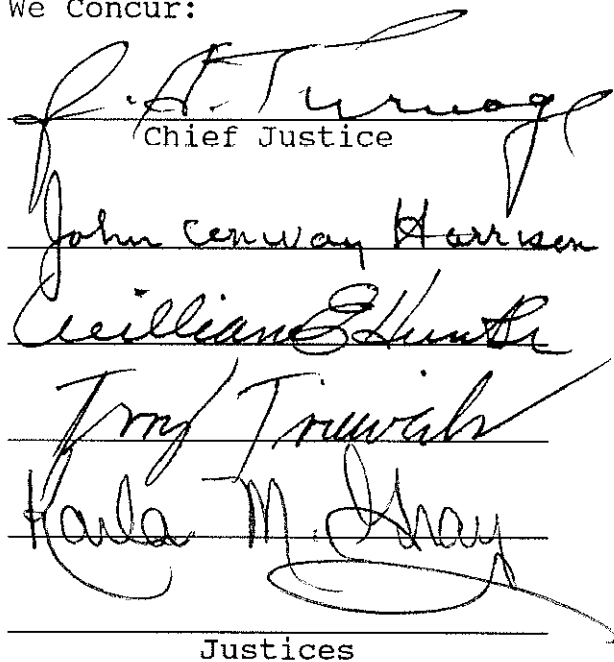 We Concur:
J. A. Turnage
Chief Justice
John Conway Harrison
William E Hunt Sr
Terry Trieweiler
Karla M. Gray
Justices